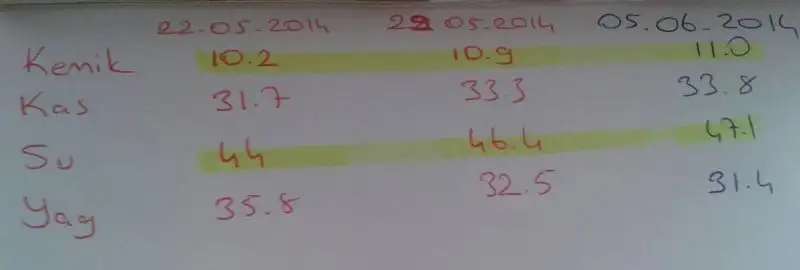 22.05.2014 29.05.2014 05.06.2014
Kemik 10.2 10.9 11.0
Kas 31.7 33.3 33.8
Su 44 46.4 47.1
Yag 35.8 32.5 31.4